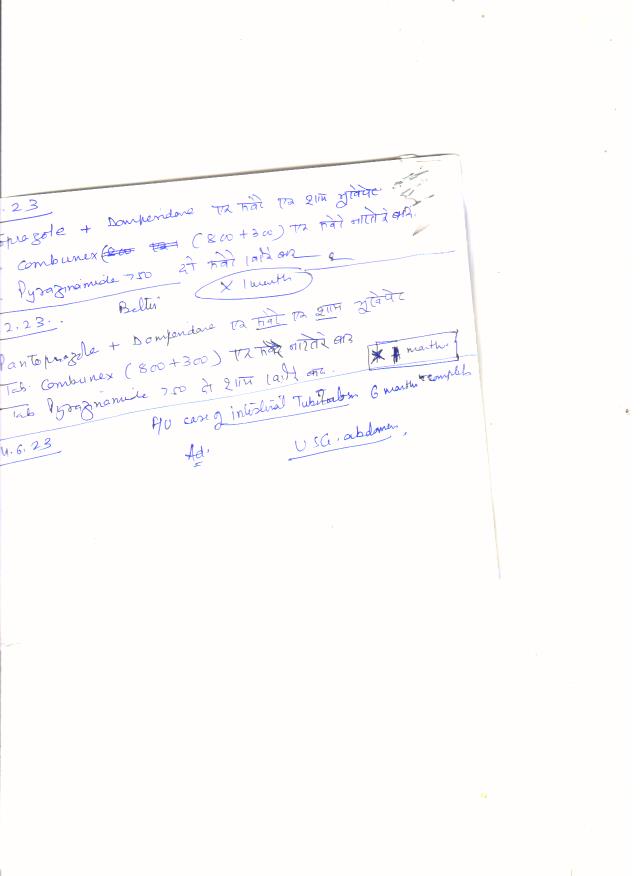 .23
oprazole + Dompendone एक सवेरे एक शाम भूखेपेट
Combunex (800+300) एक सवेरे नाश्ते के बाद.
Pyrazinamide 750 दो सवेरे खाने के बाद
x 1 month
2.23. Better
Pantoprazole + Dompendone एक सवेरे एक शाम भूखेपेट
Tab. Combunex (800+300) एक सवेरे नाश्ते के बाद
month
Tab Pyrazinamide 750 दो शाम खाने के बाद.
F/U case of intestinal Tuberculosis 6 month complete
4.6.23
Ad. USG. abdomen,